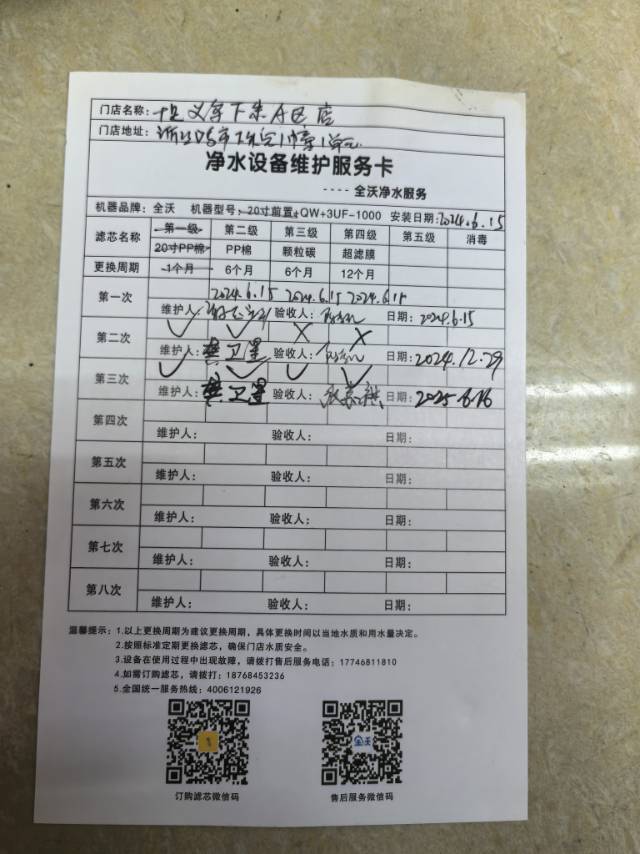 门店名称: 义 下朱A区店
门店地址:
净水设备维护服务卡
----全沃净水服务
机器品牌: 全沃 机器型号: 20寸前置+QW+3UF-1000 安装日期: 2024.6.15
滤芯名称 第一级 第二级 第三级 第四级 第五级 消毒
20寸PP棉 PP棉 颗粒碳 超滤膜
更换周期 1个月 6个月 6个月 12个月
第一次 2024.6.15 2024.6.15 2024.6.15
维护人: 验收人: 日期: 2024.6.15
第二次 ✓ ✓ ✗ ✗
维护人: 龚卫星 验收人: 日期: 2024.12.29
第三次 ✓ ✓ ✓ ✓
维护人: 龚卫星 验收人: 日期: 2025 6.16
第四次
维护人: 验收人: 日期:
第五次
维护人: 验收人: 日期:
第六次
维护人: 验收人: 日期:
第七次
维护人: 验收人: 日期:
第八次
维护人: 验收人: 日期:
温馨提示: 1.以上更换周期为建议更换周期，具体更换时间以当地水质和用水量决定。
2.按照标准定期更换滤芯，确保门店水质安全。
3.设备在使用过程中出现故障，请拨打售后服务电话: 17746811810
4.如需订购滤芯，请拨打: 18768453236
5.全国统一服务热线: 4006121926
全沃
订购滤芯微信码 售后服务微信码